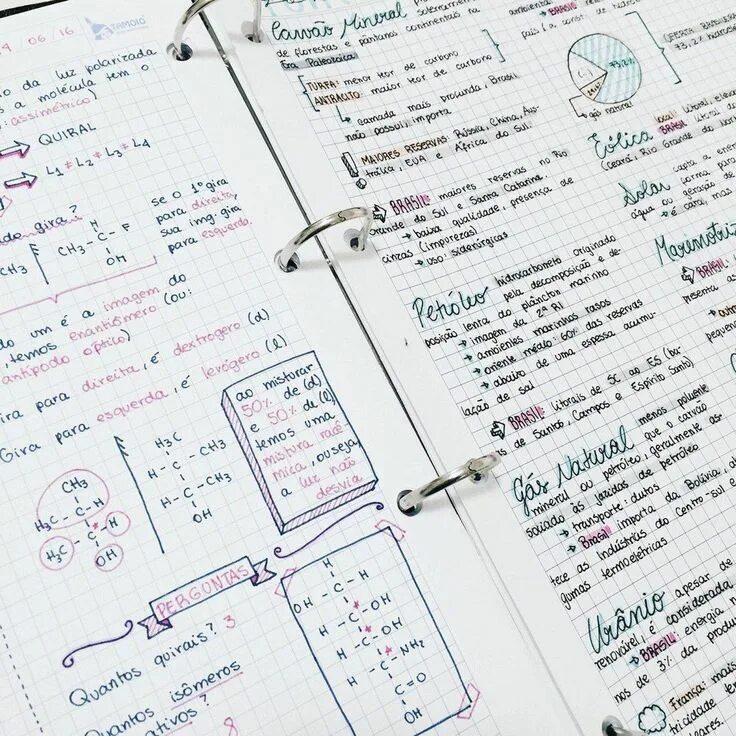 9 / 06 / 16
TAMOIO
da luz polarizada
a molécula tem o
assimétrico)
QUIRAL
L1 ≠ L2 ≠ L3 ≠ L4
gira?
se o 1º gira
para direita,
sua img. gira
para esquerda.
H
CH3 - C - F
OH
CH3
um é a imagem do
, temos enantiômero (ou:
antípodo óptico)
ira para direita, é dextrogero (d)
Gira para esquerda, é levógero (l)
ao misturar
50% de (d)
e 50% de (l),
temos uma
mistura racê-
mica, ou seja
a luz não
desvia
CH3
H3C - C - H
H3C - C* - H
OH
H3C
H - C - CH3
H - C - CH3
OH
PERGUNTAS
Quantos quirais? 3
Quantos isômeros
ativos? 8
H
OH - C - H
H - C - OH
H - C - OH
H - C - NH2
C = O
OH
Carvão Mineral
de florestas e pântanos continentais na
Era Paleozoica
TURFA: menor teor de carbono
ANTRACITO: maior teor de carbono
camada mais procurada, Brasil
não possui, importa
MAIORES RESERVAS: Rússia, China, Aus-
trália, EUA e África do Sul.
BRASIL: maiores reservas no Rio
Grande do Sul e Santa Catarina.
baixa qualidade, presença de
cinzas (impurezas)
uso: siderúrgicas
Petróleo hidrocarboneto originado
pela decomposição e de-
posição lenta do plâncton marinho
imagem da 2ª RI
ambientes marinhos rasos
oriente médio: 60% das reservas
abaixo de uma espessa acumu-
lação de sal
BRASIL: litorais de SC ao ES (ba-
is de Santos, Campos e Espírito Santo)
Gás Natural menos poluente
que o carvão
mineral ou petróleo, geralmente as-
sociado as jazidas de petróleo
transporte: dutos
Brasil importa da Bolívia,
tece as indústrias do Centro-sul e
gumas termoelétricas
Urânio apesar de
renovável, é considerada
BRASIL: energia n
nos de 3% da produ
França: mais
tricidade
leares.
ambiental
BRASIL
país é a const. de hidre
73,2%
gás natural
OFERTA BRASILEIRA
73,2% hidroelé
Eólica local: litoral, eleva
BRASIL: litoral do
(Ceará, Rio Grande do Nor
Solar capta a ener
forma para
água ou geração de
é caro, mas
Maremotriz
BRASIL:
presenta as